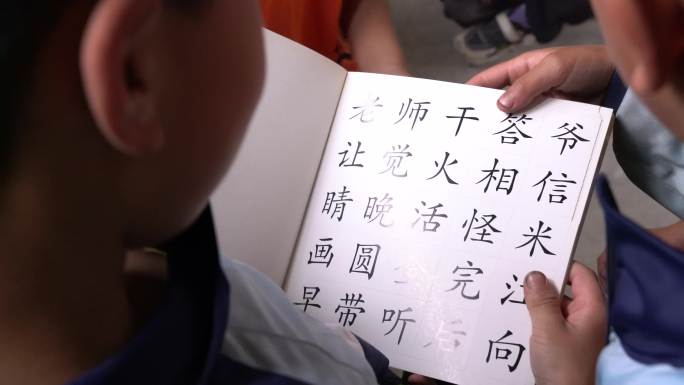 老师干答爷
让觉火相信
睛晚活怪米
画圆完江
早带听后向